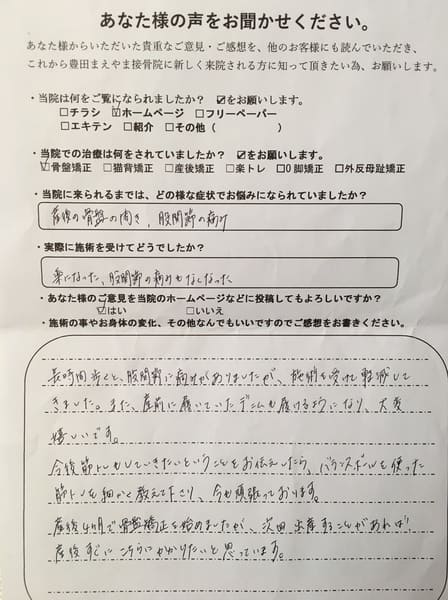 あなた様の声をお聞かせください。
あなた様からいただいた貴重なご意見・ご感想を、他のお客様にも読んでいただき、
これから豊田まえやま接骨院に新しく来院される方に知って頂きたい為、お願いします。
・当院は何をご覧になられましたか？ ☑をお願いします。
□チラシ ☑ホームページ □フリーペーパー
□エキテン □紹介 □その他（ ）
・当院での治療は何をされていましたか？ ☑をお願いします。
☑骨盤矯正 □猫背矯正 □産後矯正 □楽トレ □O脚矯正 □外反母趾矯正
・当院に来られるまでは、どの様な症状でお悩みになられていましたか？
産後の骨盤の開き、股関節の痛み
・実際に施術を受けてどうでしたか？
楽になった、股関節の痛みもなくなった
・あなた様のご意見を当院のホームページなどに投稿してもよろしいですか？
☑はい □いいえ
・施術の事やお身体の変化、その他なんでもいいですのでご感想をお書きください。
長時間歩くと、股関節に痛みがありましたが、施術を受けて軽減して
きました。また、産前に履いていたデニムも履けるようになり、大変
嬉しいです。
今後筋トレもしていきたいということをお伝えしたら、バランスボールを使った
筋トレを細かく教えて下さり、今も頑張っております。
産後4ヶ月で骨盤矯正を始めましたが、次回出産することがあれば、
産後すぐにこちらにかかりたいと思っています。